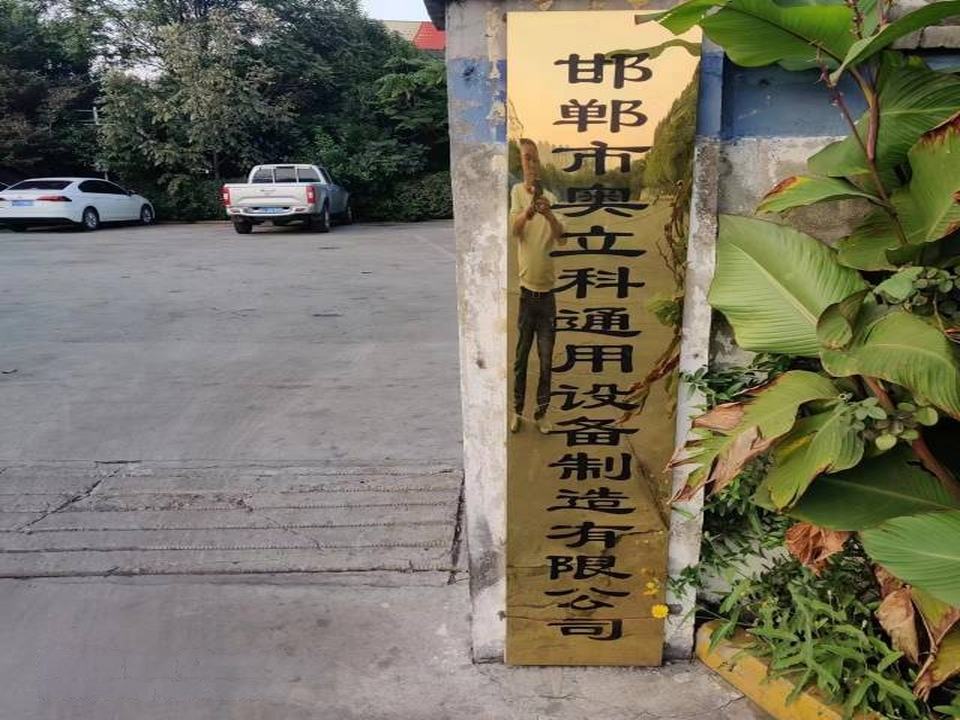 邯郸市奥立科通用设备制造有限公司